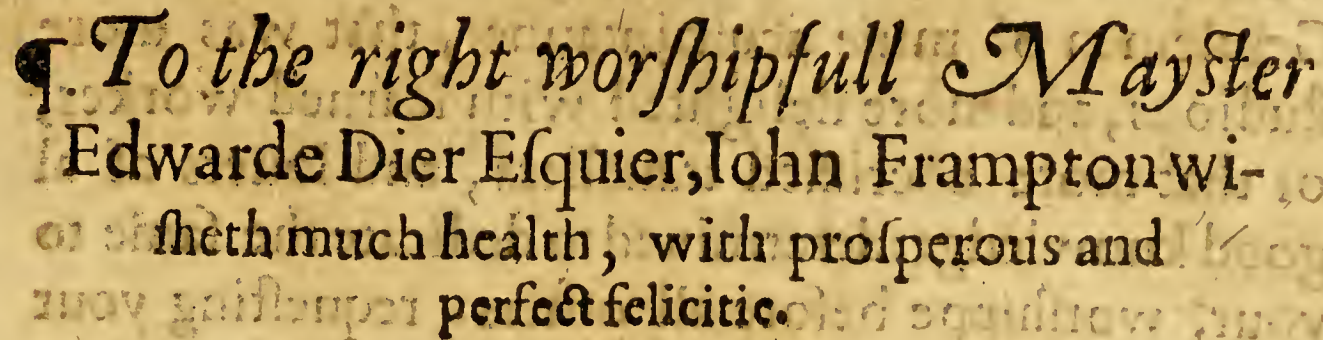 ¶. To the right worſhipfull Mayſter
Edwarde Dier Eſquier, Iohn Frampton wi-
ſheth much health, with proſperous and
perfect felicitie.